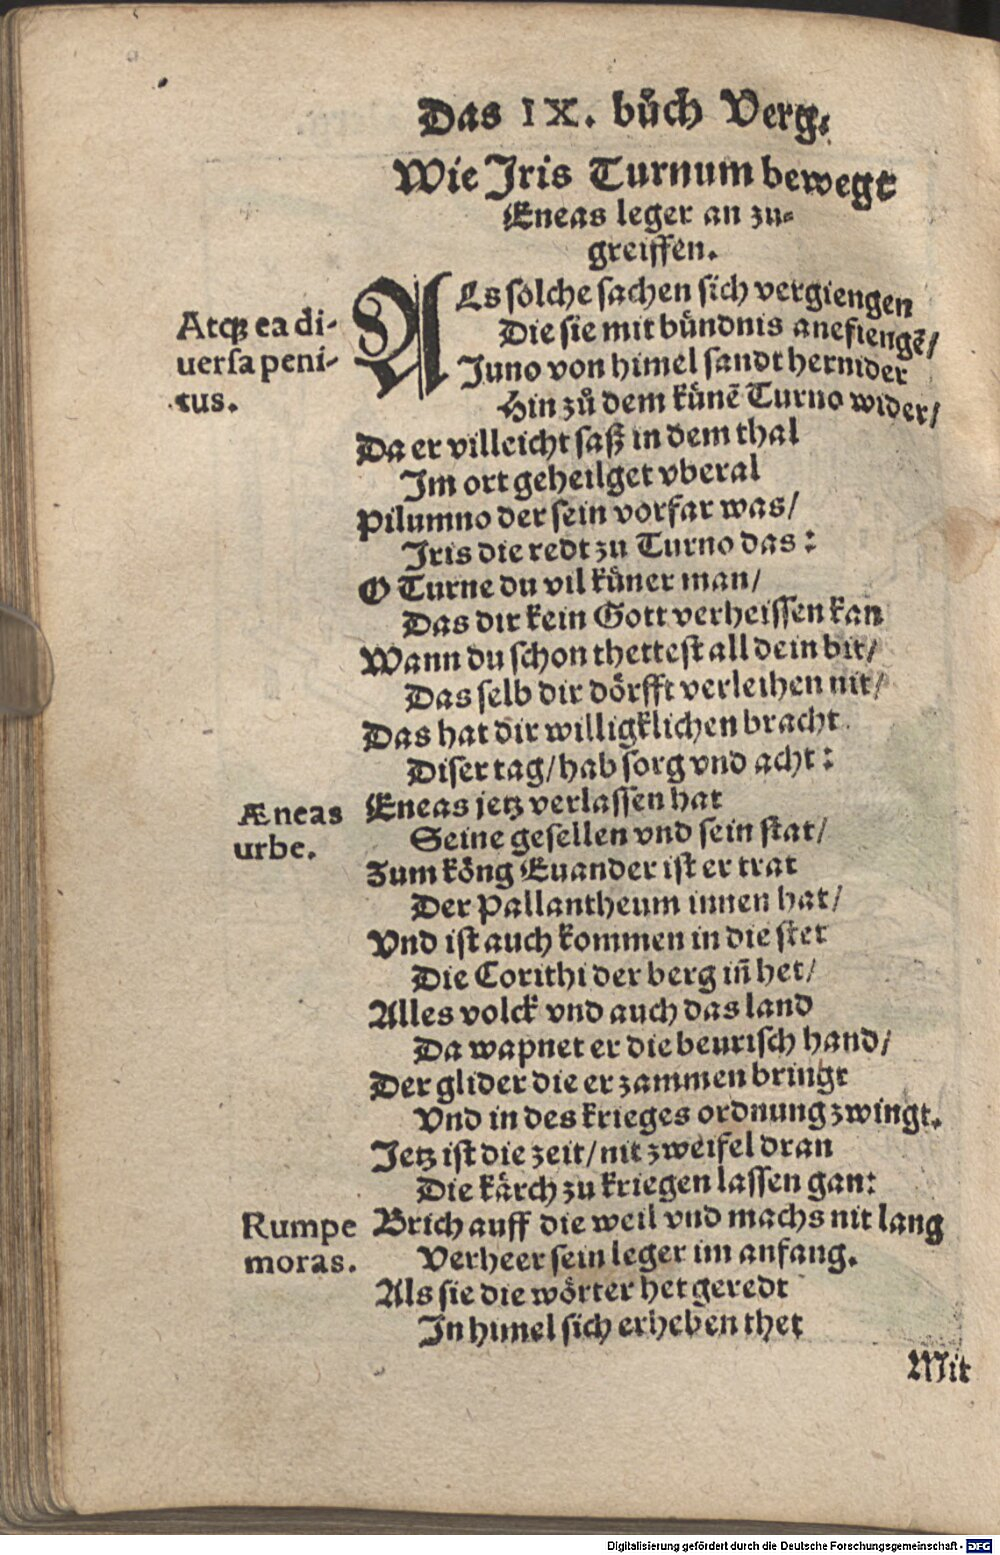 Das IX. bůch Verg.
Wie Iris Turnum bewegt
Eneas leger an zu-
greiffen.
Atqꝫ ea di-
uersa peni-
tus.
ALs sölche sachen sich vergiengen
Die sie mit bündnis anefiengē/
Juno von himel sandt hernider
Hin zů dem künē Turno wider/
Da er villeicht saß in dem thal
Im ort geheilget vberal
Pilumno der sein vorfar was/
Iris die redt zu Turno das:
O Turne du vil küner man/
Das dir kein Gott verheissen kan
Wann du schon thettest all dein bit/
Das selb dir dörfft verleihen nit/
Das hat dir willigklichen bracht
Diser tag/hab sorg vnd acht:
Æneas
urbe.
Eneas jetz verlassen hat
Seine gesellen vnd sein stat/
Zum köng Euander ist er trat
Der Pallantheum innen hat/
Vnd ist auch kommen in die stet
Die Corithi der berg iñ het/
Alles volck vnd auch das land
Da wapnet er die beurisch hand/
Der glider die er zammen bringt
Vnd in des krieges ordnung zwingt.
Jetz ist die zeit/nit zweifel dran
Die kärch zu kriegen lassen gan:
Rumpe
moras.
Brich auff die weil vnd machs nit lang
Verheer sein leger im anfang.
Als sie die wörter het geredt
In himel sich erheben thet
Mit
Digitalisierung gefördert durch die Deutsche Forschungsgemeinschaft - DFG